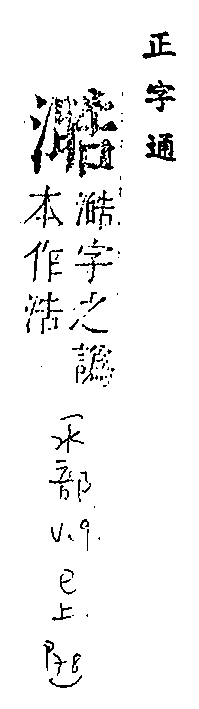 正字通
澔字之譌
本作浩
水部
V.9.
巳上.
P78